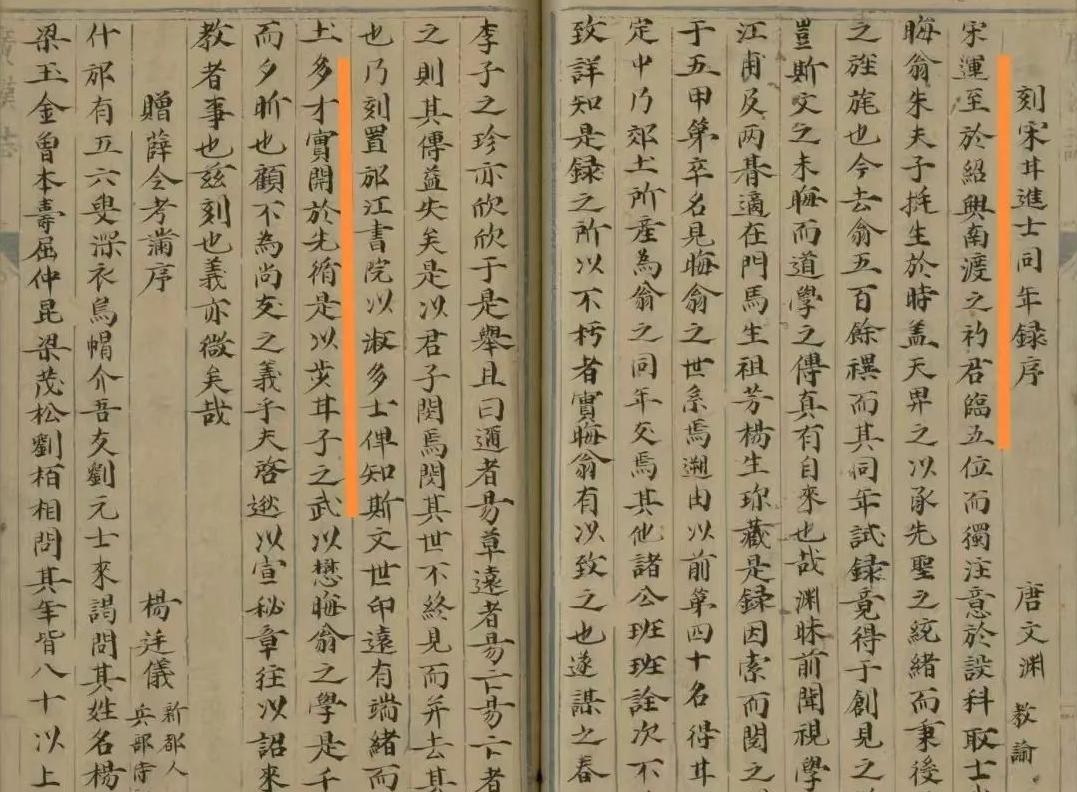 刻宋耳進士同年録序 唐文渊 教諭
宋運至於紹興南渡之初君臨五位而獨注意於設科取士
晦翁朱夫子挺生於時盖天畀之以承先聖之統緒而秉後
之旌旄也今去翁五百餘禩而其同年試録竟得于創見之
豈斯文之未晦而道學之傳真有自來也哉渊昧前聞視學
江甫及两朞適在門馬生祖芳楊生珎藏是録因索而閱之
于五甲第卒名見晦翁之世系焉遡由以前第四十名得耳
定中乃郊土所産為翁之同年友焉其他諸公班班詮次不
致詳知是録之所以不朽者實晦翁有以致之也遂謀之春
李子之珍亦欣欣于是舉且曰邇者昜草遠者昜亡昜亡者
之則其傳益失矣是以君子閔焉閔其世不終見而并去其
也乃刻置邡江書院以淑多士俾知斯文世印遠有端緒而
土多才實開於先脩是以步耳子之武以懋晦翁之學是千
而夕昕也顧不為尚友之義乎夫啓迯以宣秘章往以詔來
教者事也兹刻也義亦微矣哉
贈薛令考滿序 楊廷儀 新都人 兵部侍
什邡有五六叟深衣烏帽介吾友劉元士來謁問其姓名楊
梁玉金曾本壽屈仲昆梁茂松劉栢相問其年皆八十以上